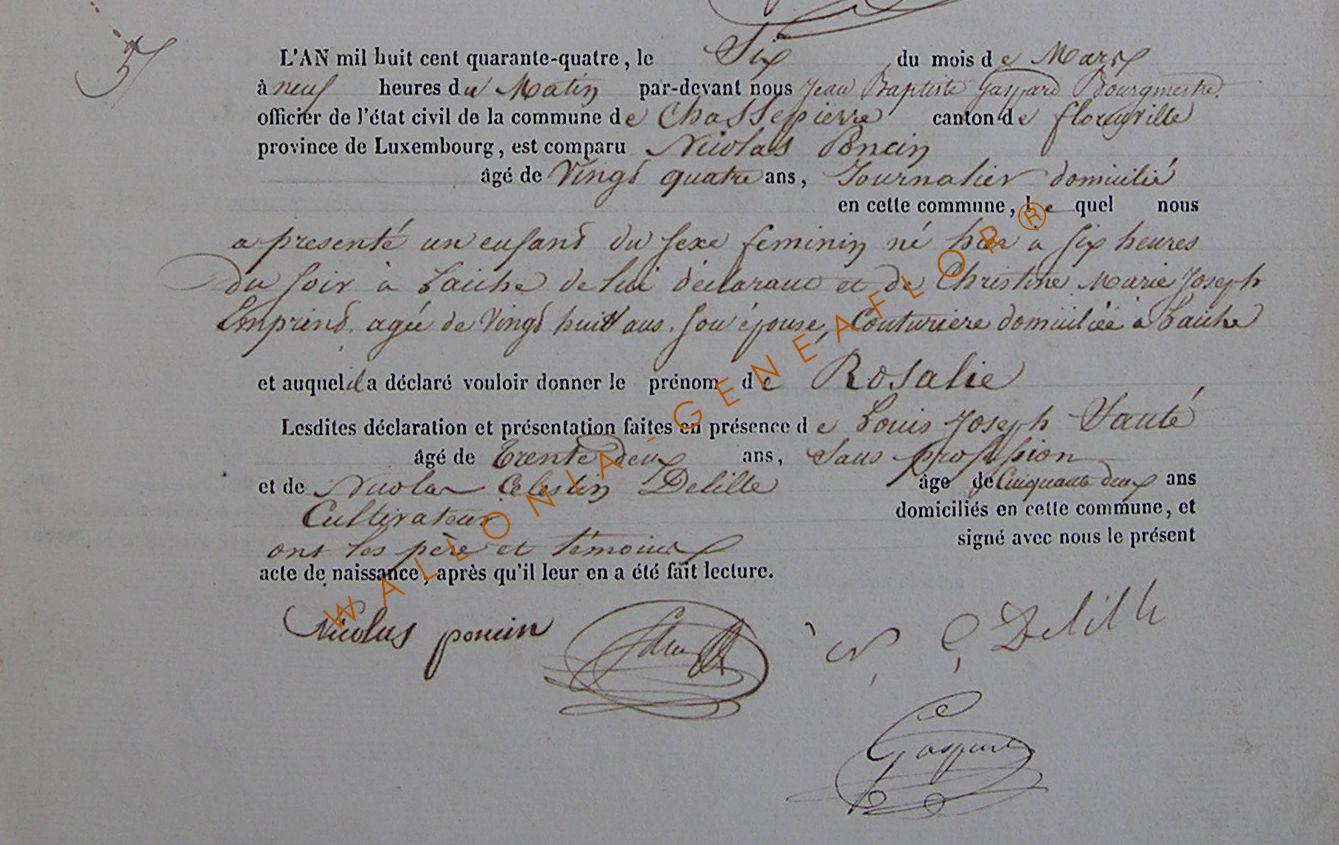 5
L'AN mil huit cent quarante-quatre, le Six du mois de Mars
à neuf heures du Matin par-devant nous Jean Baptiste Gaspard Bourgmestre.
officier de l'état civil de la commune de Chassepierre canton de florenville
province de Luxembourg, est comparu Nicolas Poncin
âgé de Vingt quatre ans, Journalier domicilié
en cette commune, le quel nous
a presenté un enfant du sexe feminin né hier a six heures
du soir à Laiche de lui déclarant et de Christine Marie Joseph
agée de Vingt huit ans son épouse, Couturiere domiciliée a Laiche
et auquel il a déclaré vouloir donner le prénom de Rosalie
Lesdites déclaration et présentation faites en présence de Louis Joseph
âgé de trente deux ans, Sans profession
et de Nicolas Celestin Delille âgé de Cinquante deux ans
Cultivateur domiciliés en cette commune, et
ont les père et témoins signé avec nous le présent
acte de naissance, après qu'il leur en a été fait lecture.
Nicolas poncin
N. C. Delille
Gaspard
WALLONIA - GENEAFLOR ®